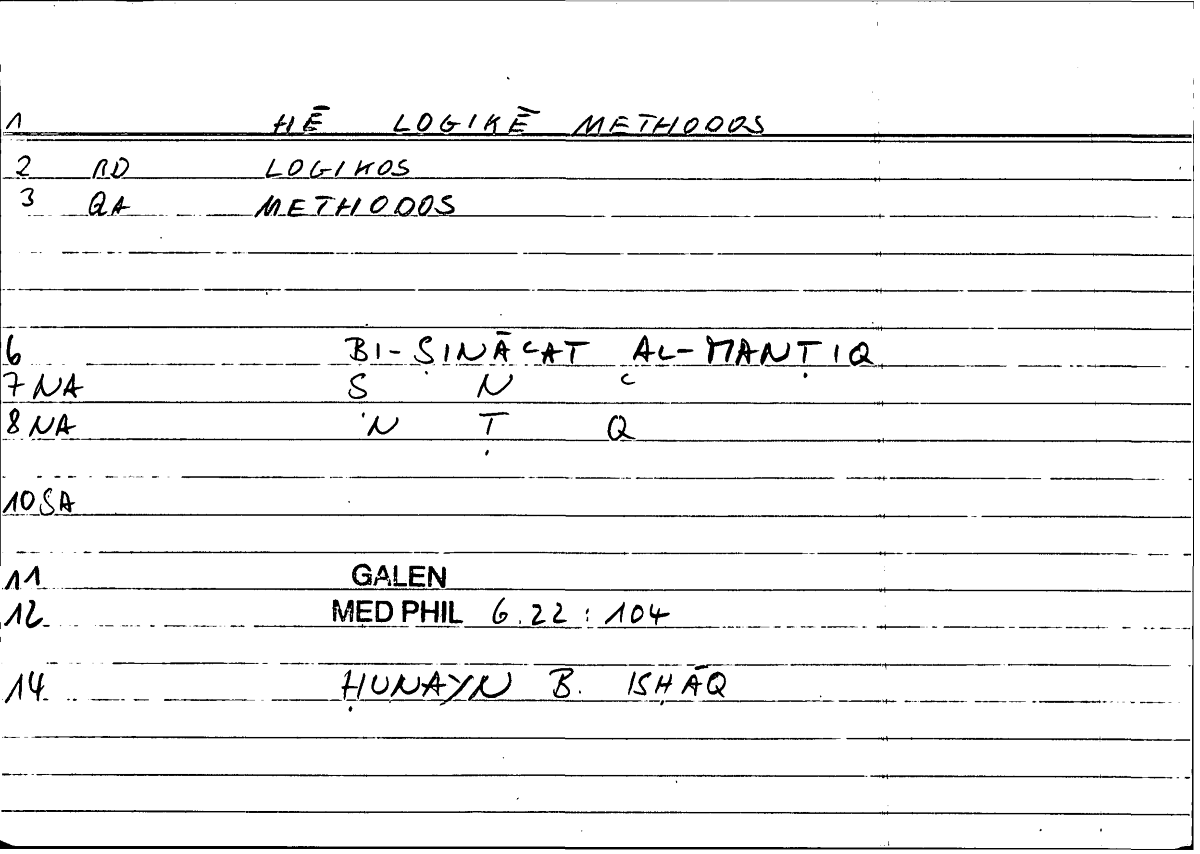 1 HĒ LOGIKĒ METHODOS
2 RD LOGIKOS
3 QA METHODOS
6 BI-ṢINĀꜤAT AL-MANṬIQ
7 NA Ṣ N Ꜥ
8 NA N Ṭ Q
10 SA
11 GALEN
12 MED PHIL 6.22 : 104
14 ḤUNAYN B. ISḤĀQ